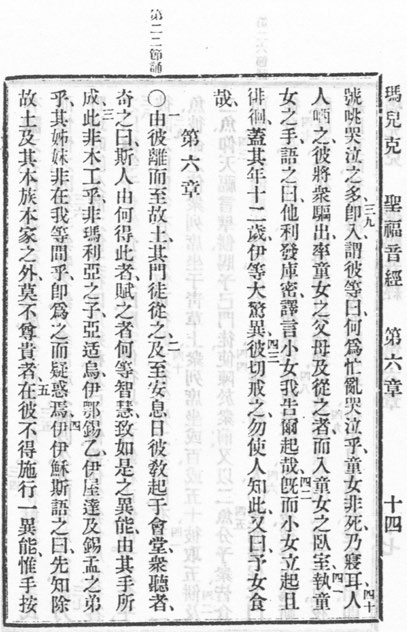 瑪兒克 聖福音經 第六章 十四
號咷哭泣之多三九卽入謂彼等曰何爲忙亂哭泣乎童女非死乃寢耳四十人
人哂之彼將衆驅出率童女之父母及從之者而入童女之臥室四一執童
女之手語之曰他利發庫密譯言小女我告爾起哉四二旣而小女立起且
徘徊蓋其年十二歲伊等大驚異四三彼切戒之勿使人知此又曰予女食
哉
第六章
〇一由彼離而至故土其門徒從之二及至安息日彼敎起于會堂衆聽者
奇之曰斯人由何得此者賦之者何等智慧致如是之異能由其手所
成三此非木工乎非瑪利亞之子亞适烏伊鄂錫乙伊屋達及錫孟之弟
乎其姊妹非在我等間乎卽爲之而疑惑焉四伊伊穌斯語之曰先知除
故土及其本族本家之外莫不尊貴者五在彼不得施行一異能惟手按